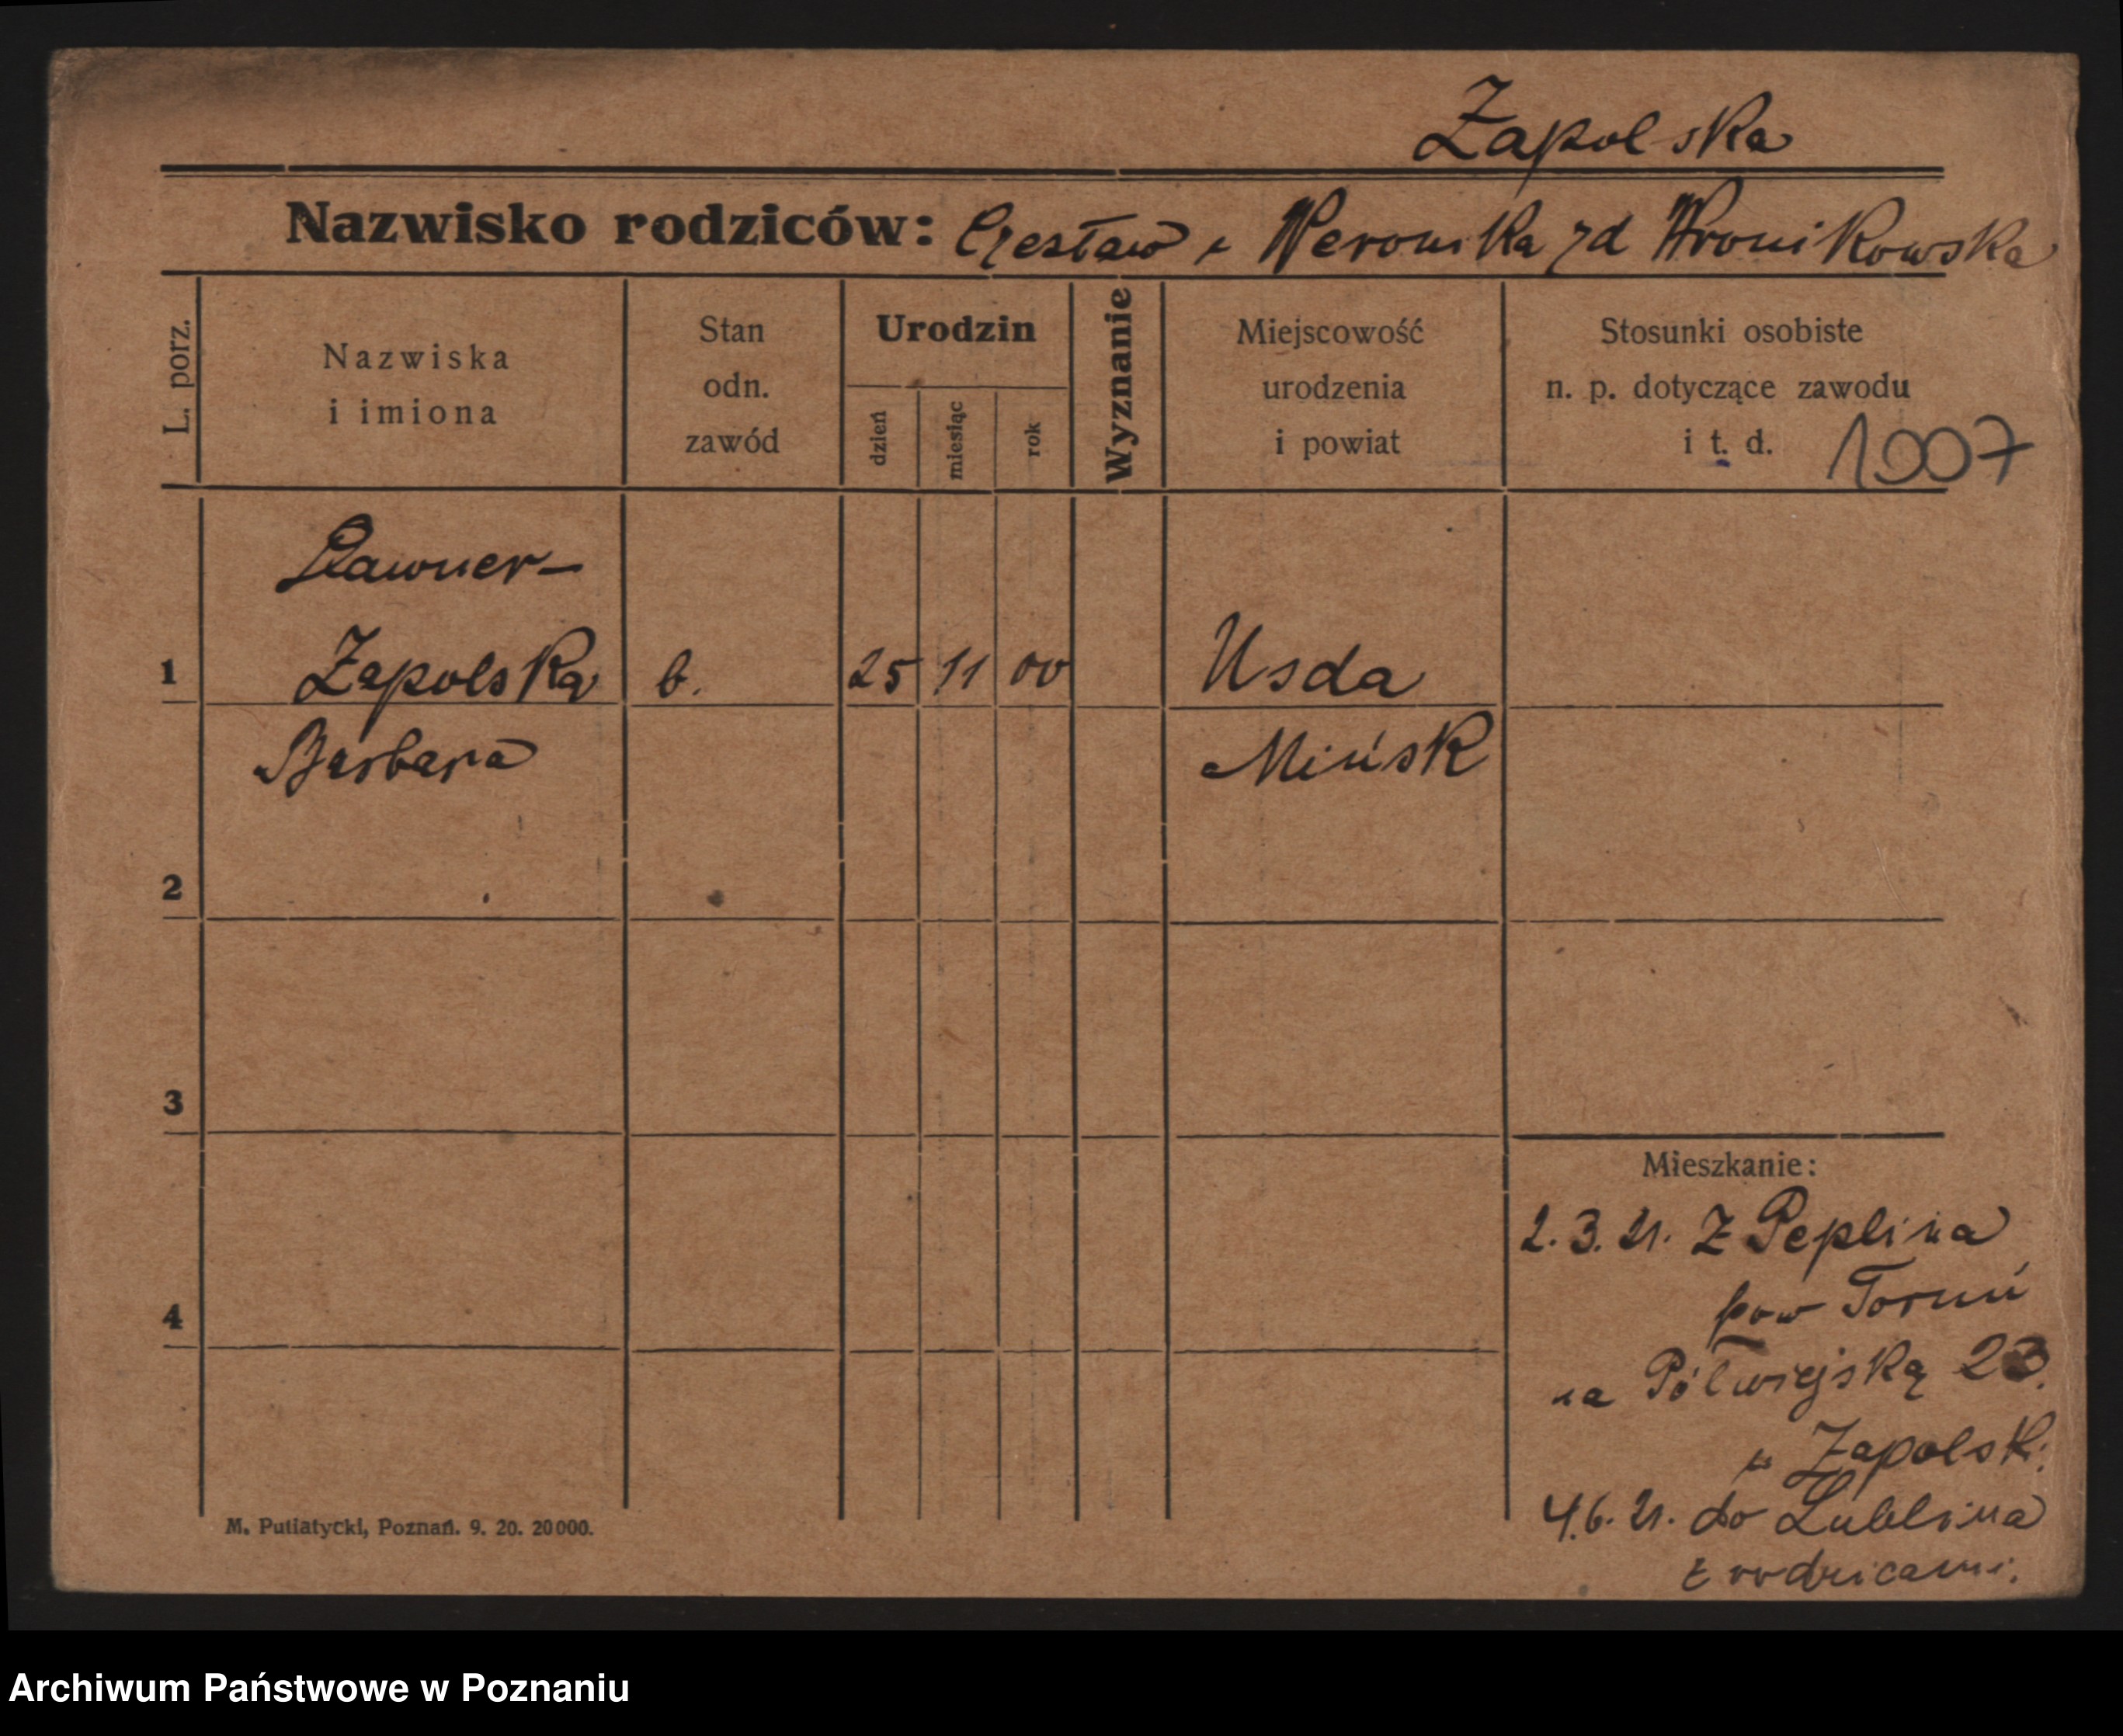 Zapolska
Nazwisko rodziców: Czesław i Weronika zd Wronikowska
L. porz.
Nazwiska
i imiona
Stan
odn.
zawód
Urodzin
dzień
miesiąc
rok
Wyznanie
Miejscowość
urodzenia
i powiat
Stosunki osobiste
n. p. dotyczące zawodu
i t. d. 1007
Zapolska
1 b. 25 11 00 Usda
Barbara Mińsk
2
3
Mieszkanie:
2. 3. 21. Z Peplina
pow Toruń
4
na Półwiejską 23.
u Zapolsk.
4.6. 21. do Lublina
z rodzicami.
M. Putiatycki, Poznań. 9. 20. 20000.
Archiwum Państwowe w Poznaniu